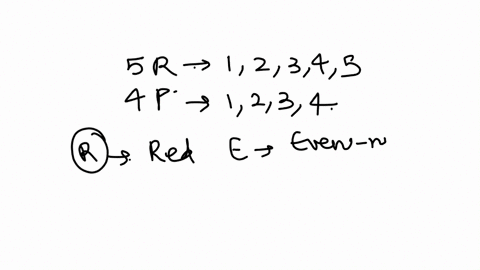 5R → 1, 2, 3, 4, 5
4P → 1, 2, 3, 4
R → Red E → Even-n